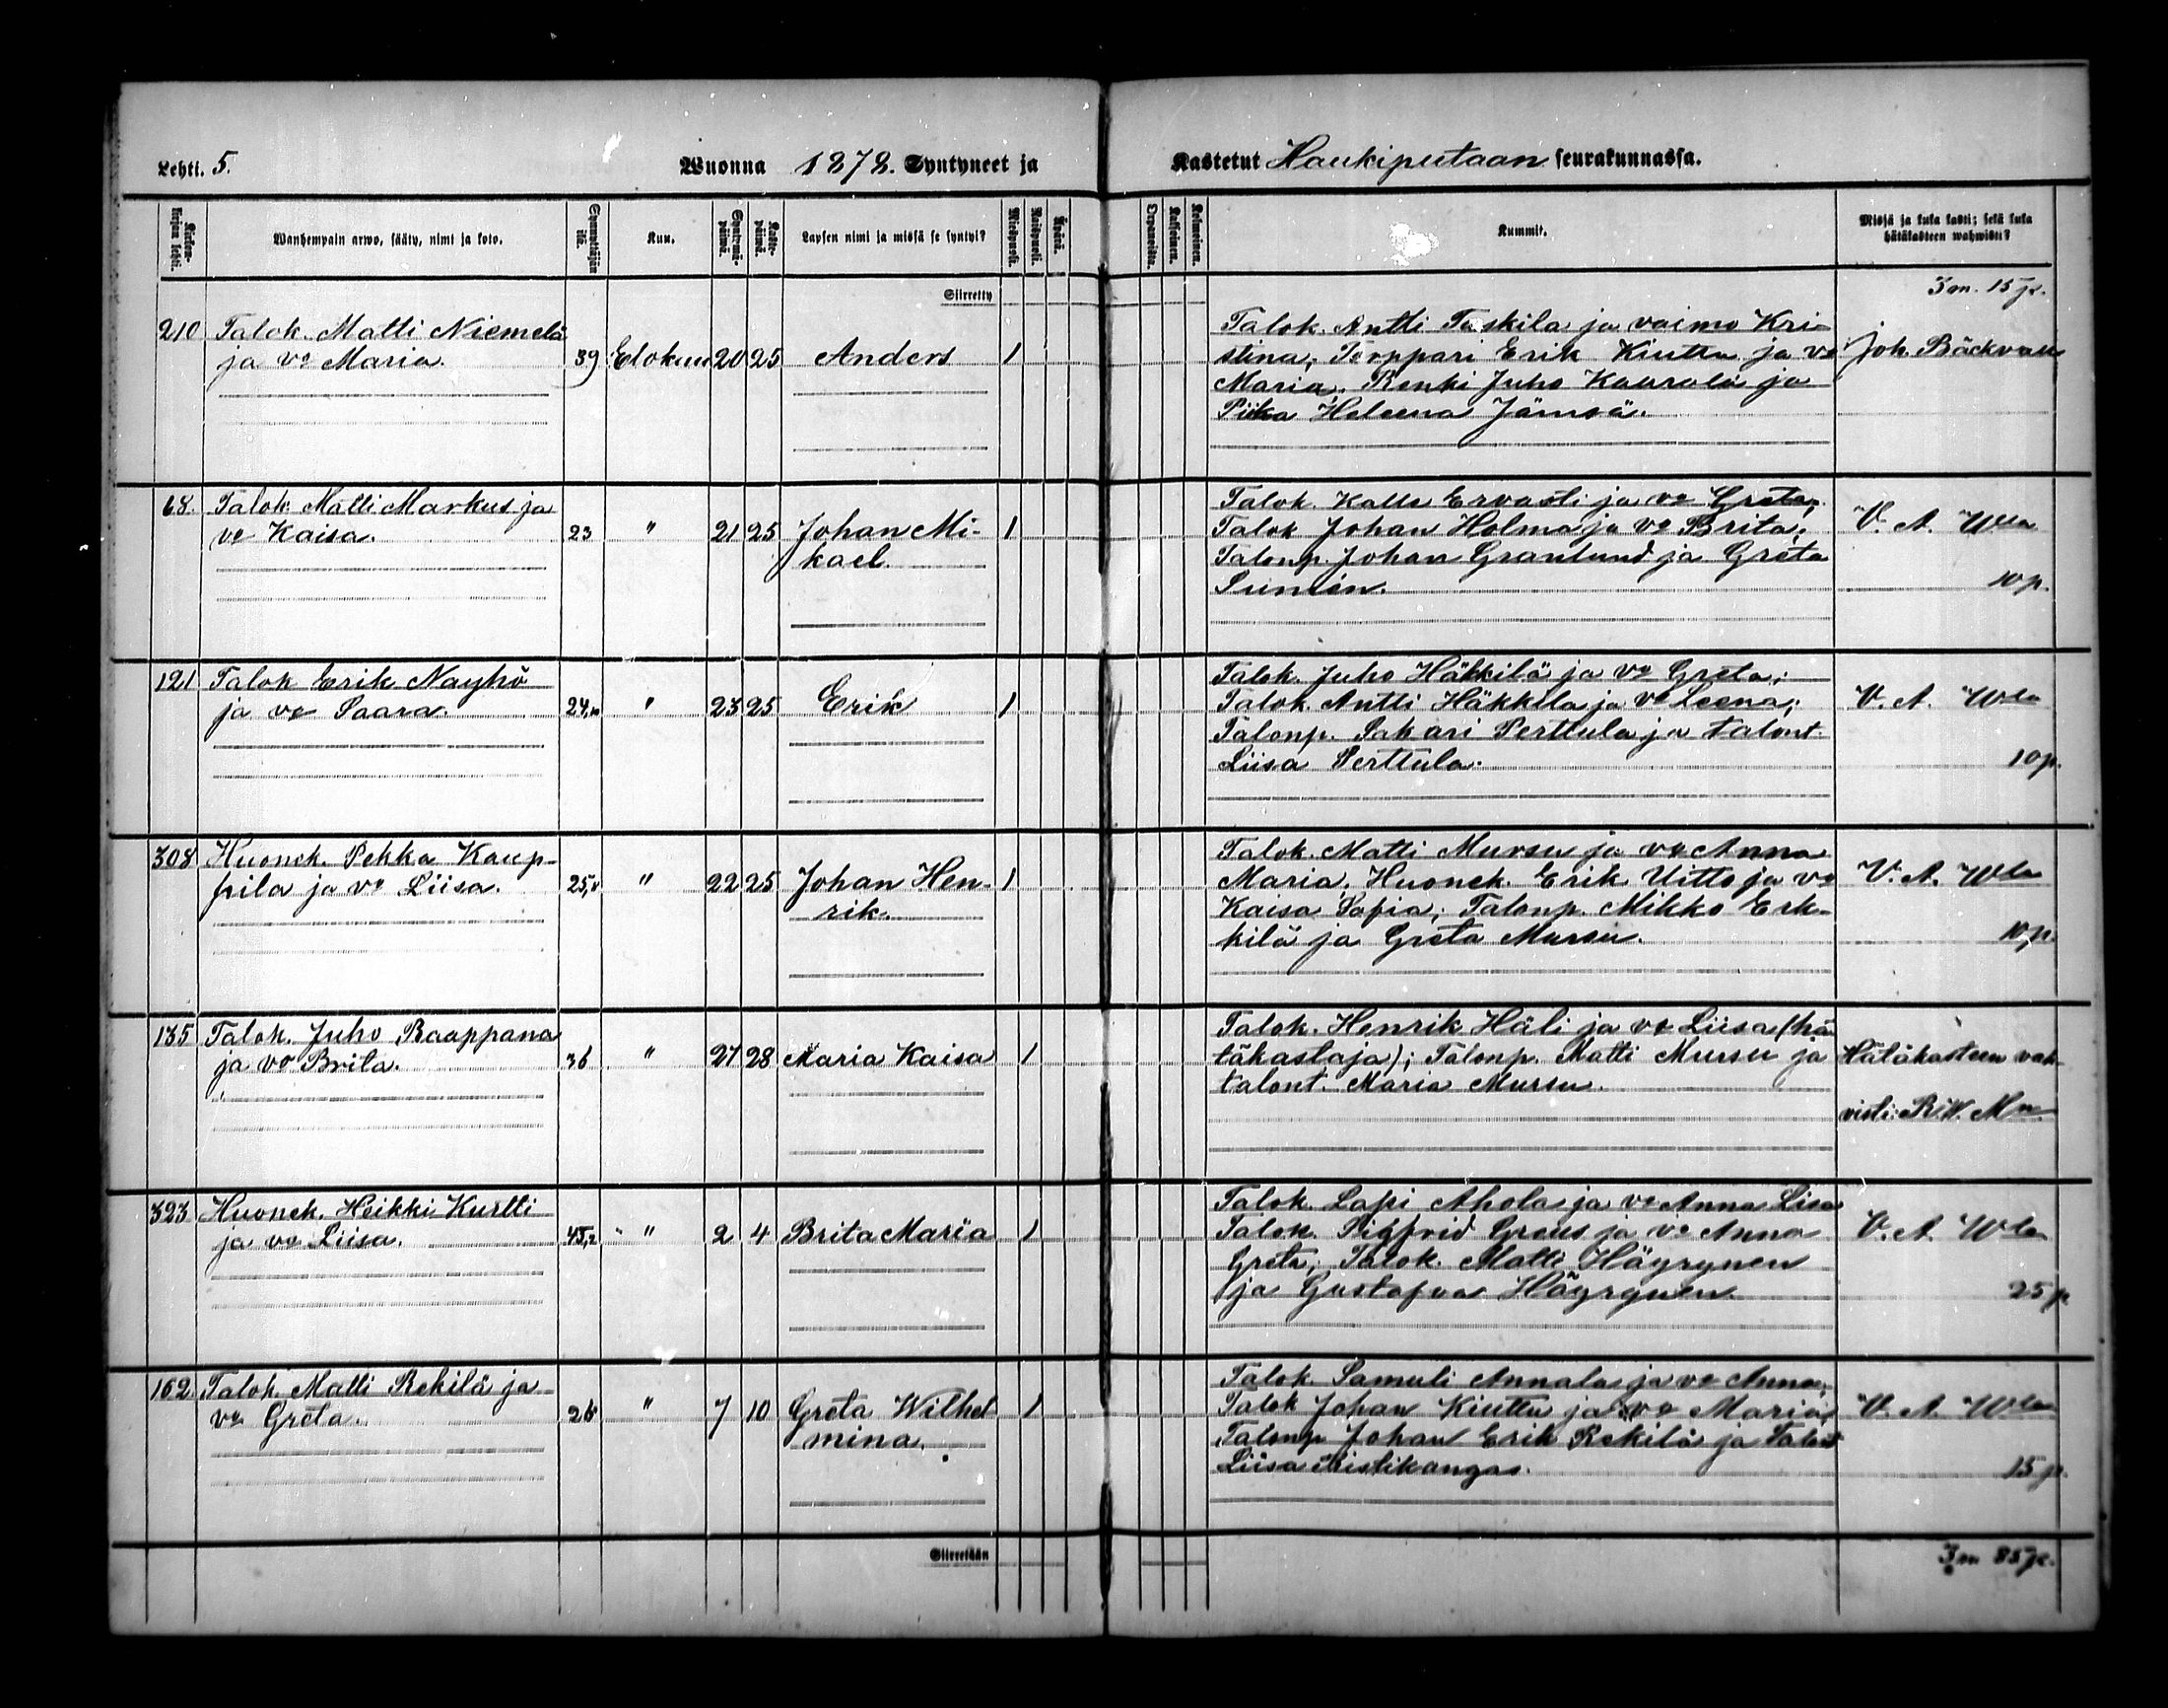 Lehti. 5. Wuonna 1878. Syntyneet ja Kastetut Haukiputaan seurakunnassa.
Kirkonkirjan lehti.
Wanhempain arwo, sääty, nimi ja koto.
Synnyttäjän ikä.
Kuu.
Syntymäpäiwä.
Kastepäiwä.
Lapsen nimi ja missä se syntyi?
Miespuoli.
Waimopuoli.
Äpärä.
Kaksoinen.
Kolmoinen.
Kummit.
Missä ja kuka kasti; sekä kuka
hätäkasteen wahwisti?
Siirretty
3 m. 15 p.
210 Talok. Matti Niemelä
ja vo Maria. 39 Elokuu 20 25 Anders 1
Talok. Antti Taskila ja vaimo Kri-
stina; Torppari Erik Kiuttu ja vo
Maria; Renki Juho Kaurala ja
Piika Heleena Jämsä.
Joh. Bäckvall
68. Talok. Matti Markus ja
vo Kaisa. 23 " 21 25 Johan Mi-
kael. 1
Talok. Kalle Ervasti ja vo Greta;
Talok Johan Holma ja vo Brita;
Talonp. Johan Granlund ja Greta
Sunién.
V. A. Wla
10 p.
121 Talok Erik Nayhö
ja vo Saara. 24 " 23 25 Erik 1
Talok. Juho Häkkilä ja vo Greta;
Talok. Antti Häkkila ja vo Leena;
Talonp. Sakari Perttula ja talont.
Liisa Perttula.
V. A. Wla
10 p.
308 Huonek. Pekka Kaup-
pila ja vo Liisa. 25 " 22 25 Johan Hen-
rik. 1
Talok. Matti Mursu ja vo Anna
Maria. Huonek. Erik Uitto ja vo
Kaisa Sofia; Talonp. Mikko Erk-
kilä ja Greta Mursu.
V. A. Wla
10 p.
135 Talok. Juho Raappana
ja vo Brita. 36 " 27 28 Maria Kaisa 1
Talok. Henrik Häli ja vo Liisa (hä-
täkastaja); Talonp. Matti Mursu ja
talont. Maria Mursu.
Hätäkasteen vah-
visti: R. W. Mn
323 Huonek. Heikki Kurtti
ja vo Liisa. 45,2 " 2 4 Brita Maria 1
Talok. Lapi Ahola ja vo Anna Lisa
Talok. Sigfrid Greus ja vo Anna
Greta; Talok. Matti Häyrynen
ja Gustafva Häyrynen.
V. A. Wla
25 p.
162 Talok. Matti Rekilä ja
vo Greta. 26 " 7 10 Greta Wilhel
mina. 1
Talok. Samuli Annala ja vo Anna;
Talok Johan Kiuttu ja vo Maria;
Talonp Johan Erik Rekilä ja Talont
Liisa Ristikangas.
V. A. Wla
15 p.
Siirretään
3 m 85 p.